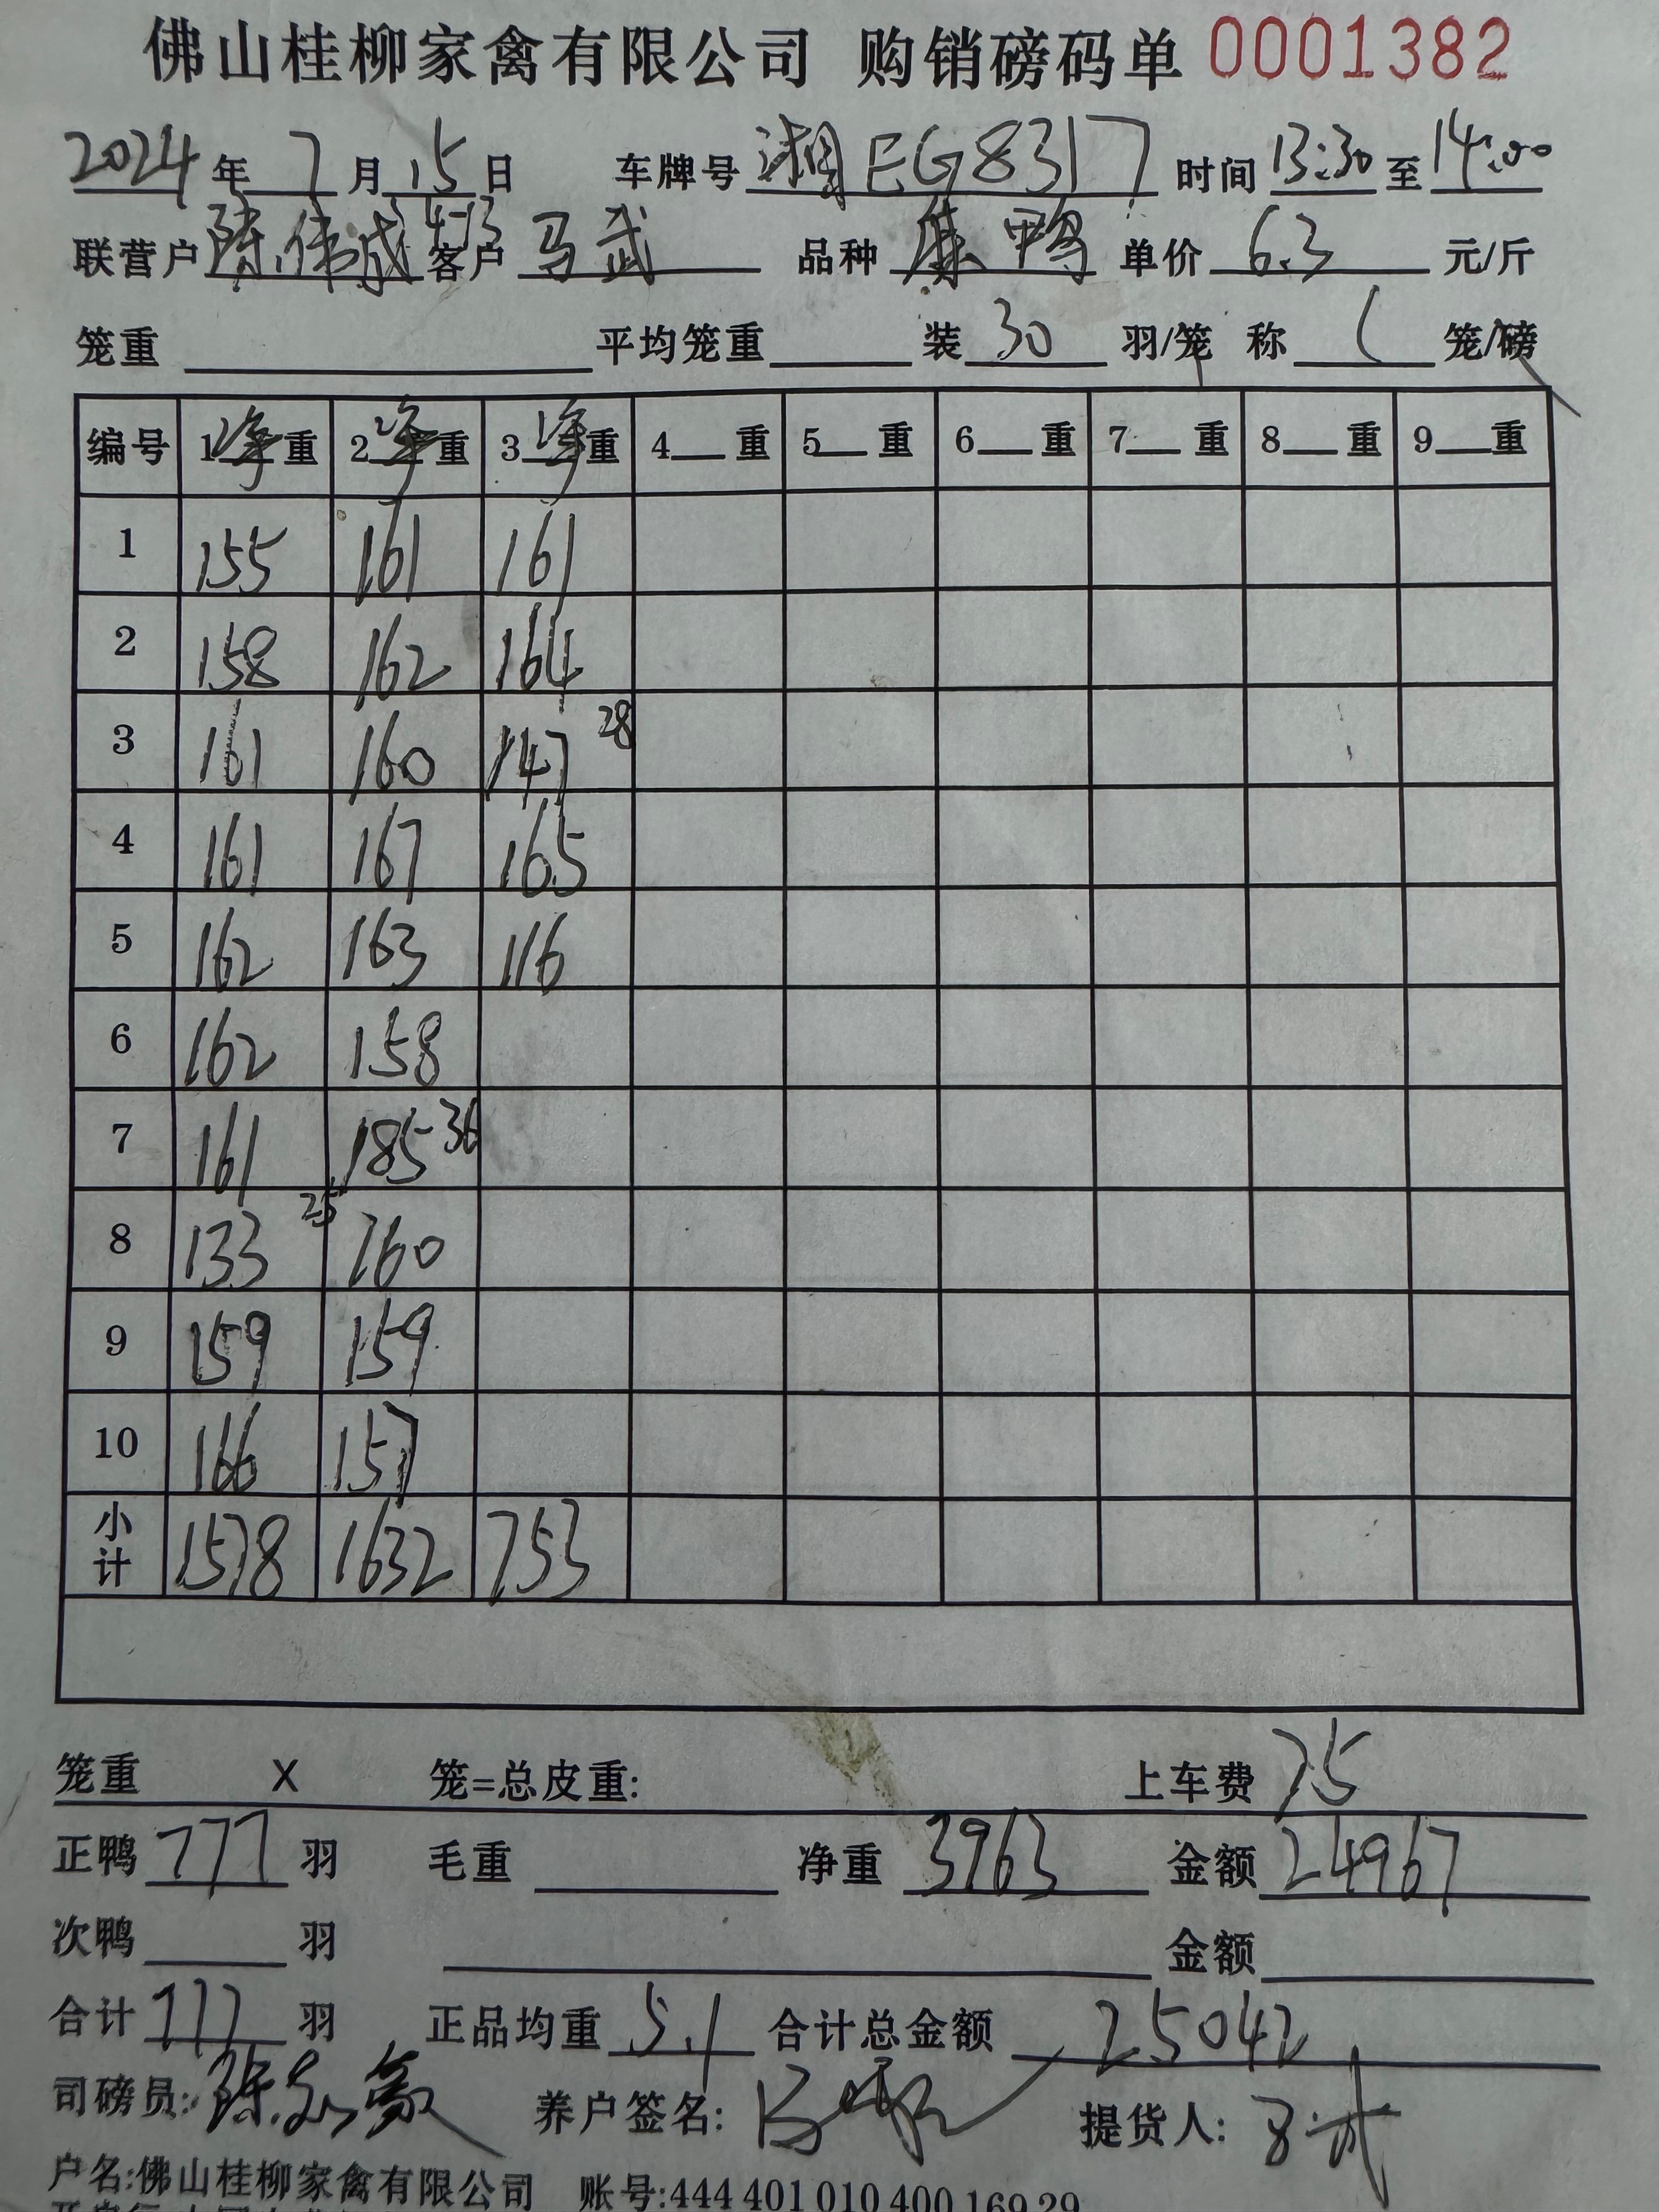 佛山桂柳家禽有限公司 购销磅码单 0001382
2024 年 7 月 15 日 车牌号 湘EG8317 时间 13:30 至 14:00
联营户 陈伟成 4-13 客户 马武 品种 麻鸭 单价 6.3 元/斤
笼重 平均笼重 装 30 羽/笼 称 1 笼/磅
编号 1 净 重 2 净 重 3 净 重 4 重 5 重 6 重 7 重 8 重 9 重
1 155 161 161
2 158 162 164
3 161 160 147 28
4 161 167 165
5 162 163 116
6 162 158
7 161 185 36
8 133 25 160
9 159 159
10 166 157
小计 1578 1632 753
笼重 X 笼=总皮重: 上车费 75
正鸭 777 羽 毛重 净重 3963 金额 24967
次鸭 羽 金额
合计 777 羽 正品均重 5.1 合计总金额 25042
司磅员: 养户签名: 提货人:
户名:佛山桂柳家禽有限公司 账号:444 401 010 400 169 29